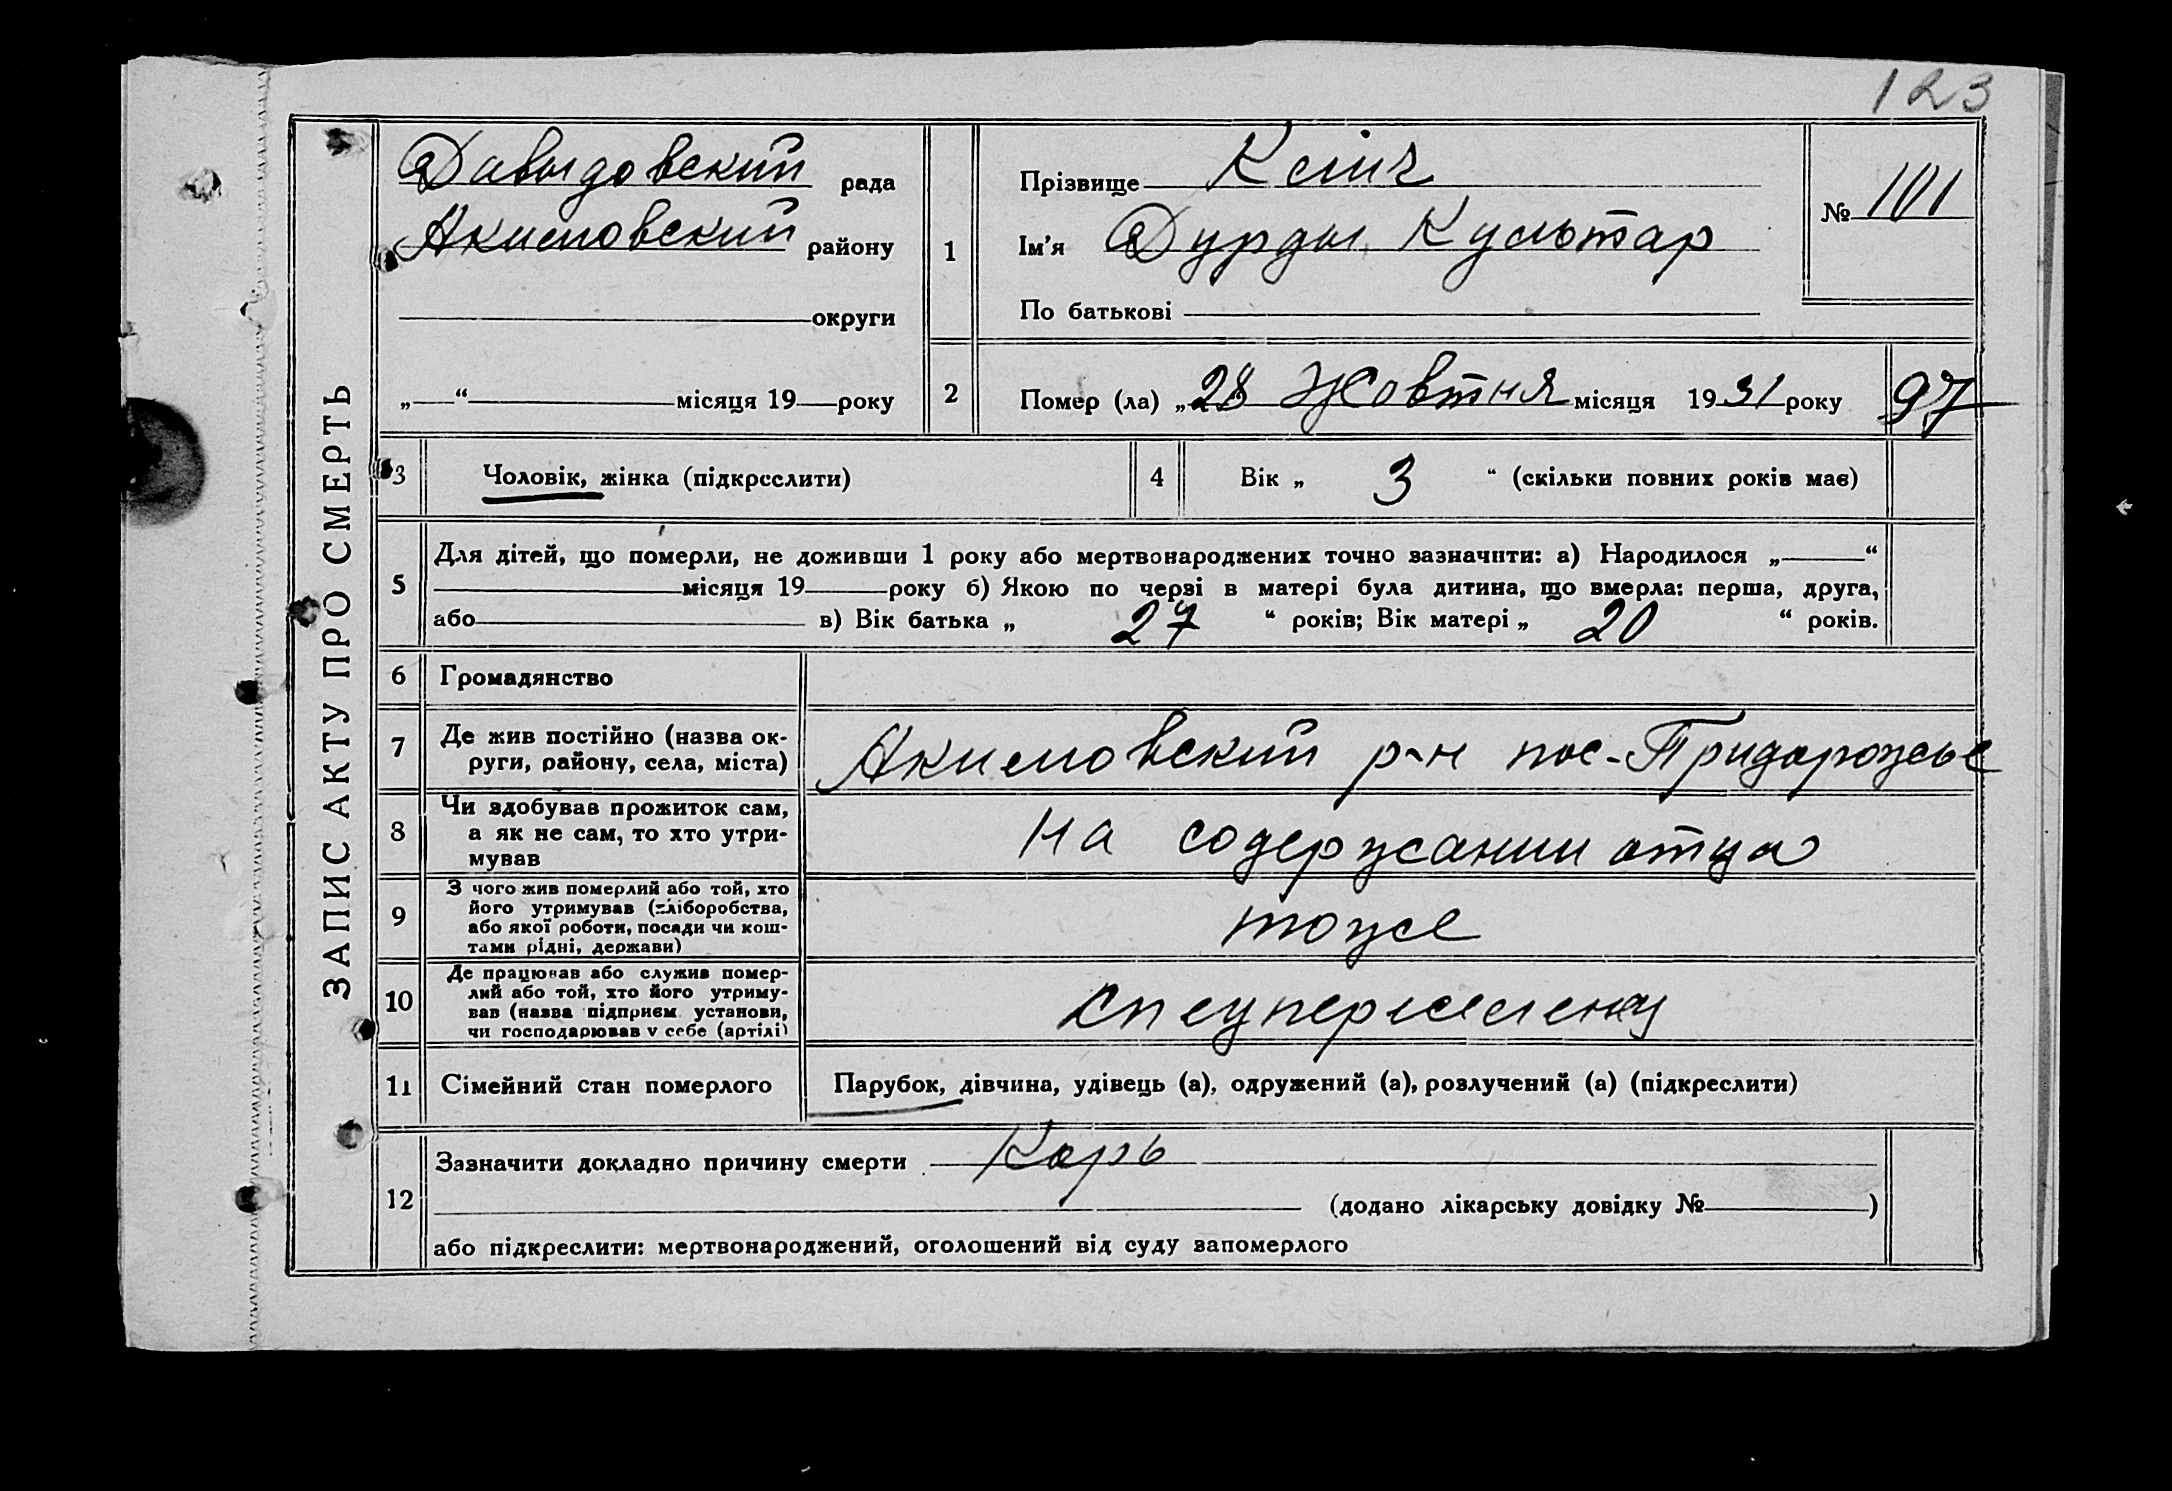 123
ЗАПИС АКТУ ПРО СМЕРТЬ
Давыдовский рада
Акимовский району
округи
„ “ місяця 19 року
1
Прізвище Келич
Ім'я Дурды Культар
По батькові
№ 101
2
Помер (ла) „28 Жовтня місяця 1931 року
97
3
Чоловік, жінка (підкреслити)
4
Вік „ 3 “ (скільки повних років має)
5
Для дітей, що померли, не доживши 1 року або мертвонароджених точно зазначити: а) Народилося „ “
місяця 19 року б) Якою по черзі в матері була дитина, що вмерла: перша, друга,
або в) Вік батька „ 27 “ років; Вік матері „ 20 “ років.
6
Громадянство
7
Де жив постійно (назва ок-
руги, району, села, міста)
Акимовский р-н пос-Придорожье
8
Чи здобував прожиток сам,
а як не сам, то хто утри-
мував
на содержании отца
9
З чого жив померлий або той, хто
його утримував (хліборобства,
або якої роботи, посади чи кош-
тами рідні, держави)
тоже
10
Де працював або служив помер-
лий або той, хто його утриму-
вав (назва підприєм. установи,
чи господарював у себе (артілі)
11
Сімейний стан померлого
Парубок, дівчина, удівець (а), одружений (а), розлучений (а) (підкреслити)
12
Зазначити докладно причину смерти Корь
(додано лікарську довідку № )
або підкреслити: мертвонароджений, оголошений від суду запомерлого